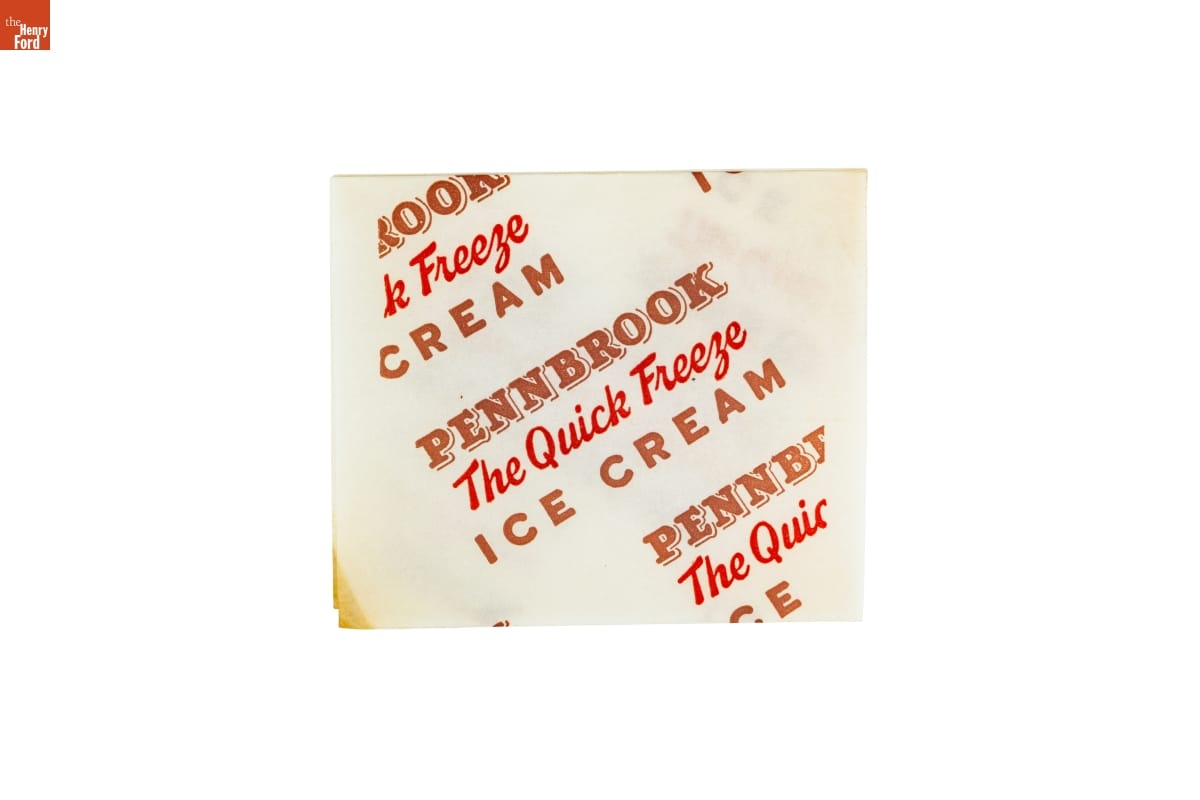 the
Henry
Ford
ROOK
k Freeze
CREAM
IC
PENNBROOK
The Quick Freeze
ICE CREAM
PENNBR
The Quic
CE